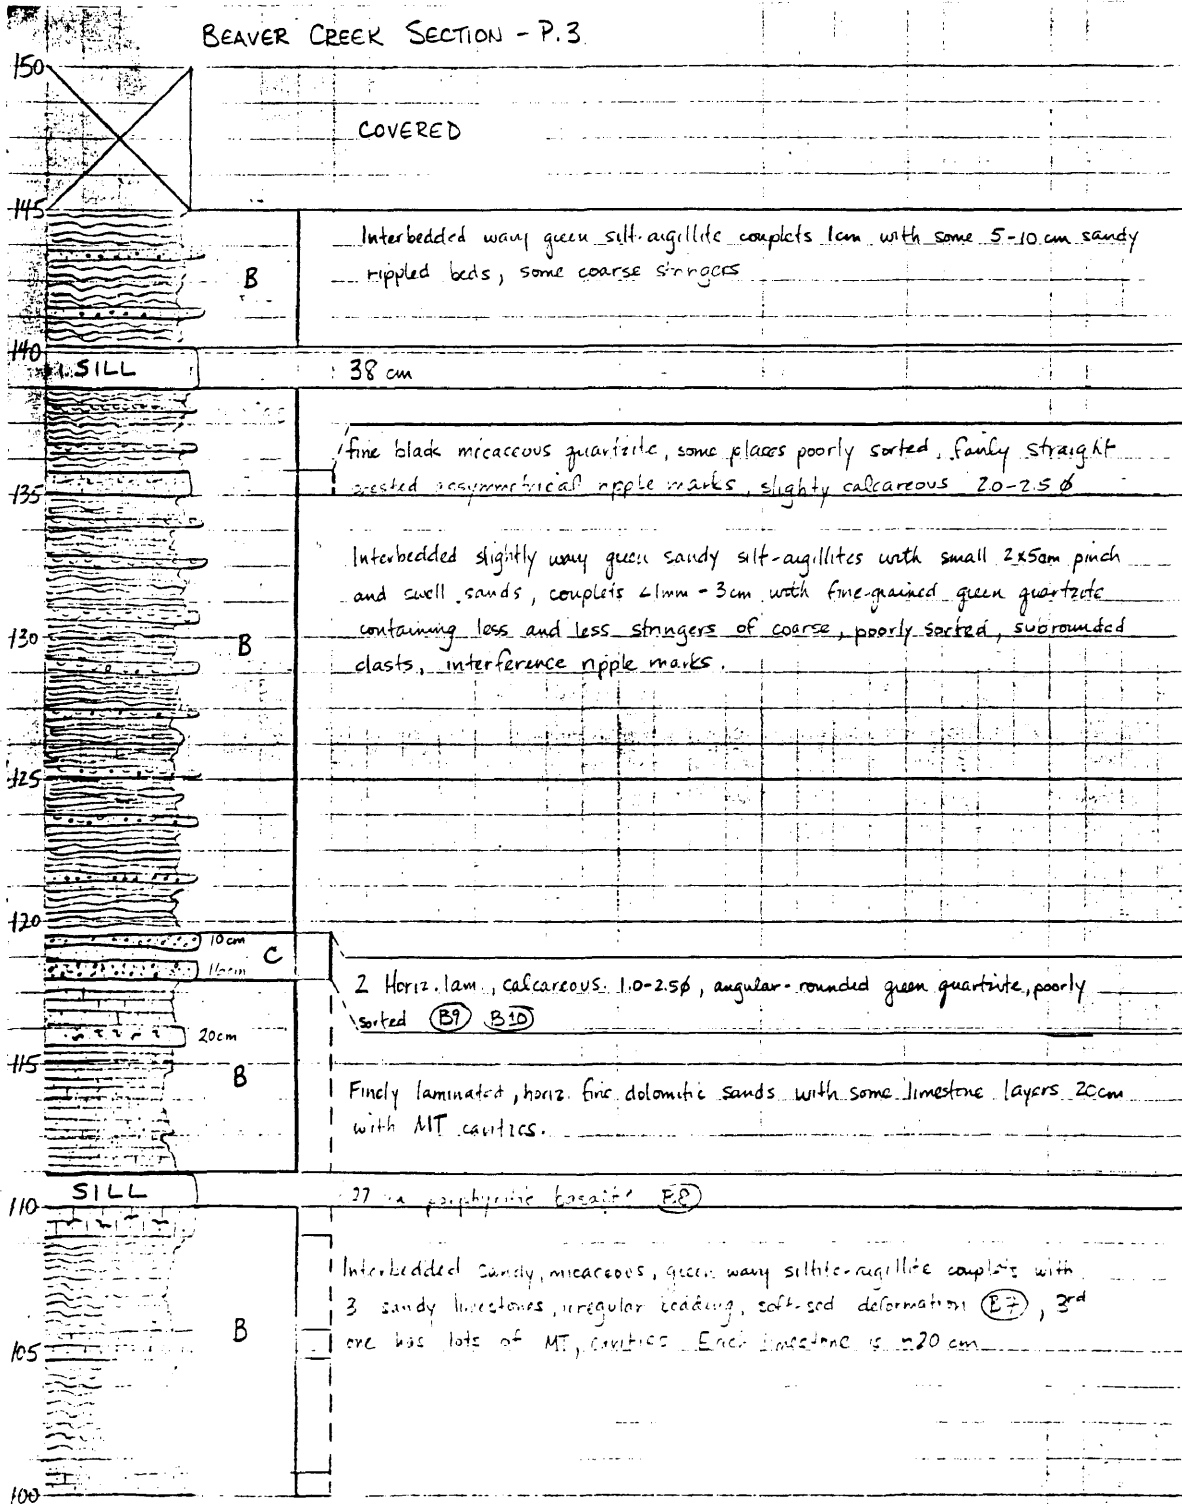 BEAVER CREEK SECTION - P.3
150
COVERED
145
Interbedded wavy green silt-argillite couplets 1cm with some 5-10 cm sandy
B
rippled beds, some coarse stringers
140
SILL
38 cm
fine black micaceous quartzite, some places poorly sorted, fairly straight
135
crested assymmetrical ripple marks, slighty calcareous 2.0-2.5 ø
Interbedded slightly wavy green sandy silt-argillites with small 2x5cm pinch
and swell sands, couplets <1mm - 3cm with fine-grained green quartzite
130
B
containing less and less stringers of coarse, poorly sorted, subrounded
clasts, interference ripple marks.
125
120
10cm
C
2 Horiz. lam., calcareous. 1.0-2.5ø, angular-rounded green quartzite, poorly
sorted B9 B10
20cm
115
B
Finely laminated, horiz. fine dolomitic sands with some limestone layers 20cm
with MT cavities.
SILL
110
porphyritic basalt
Interbedded sandy, micaceous, green wavy siltite-argillite couplets with
3 sandy limestones, irregular bedding, soft-sed deformation B7, 3rd
B
one has lots of MT, cavities Each limestone is ~20 cm
105
100